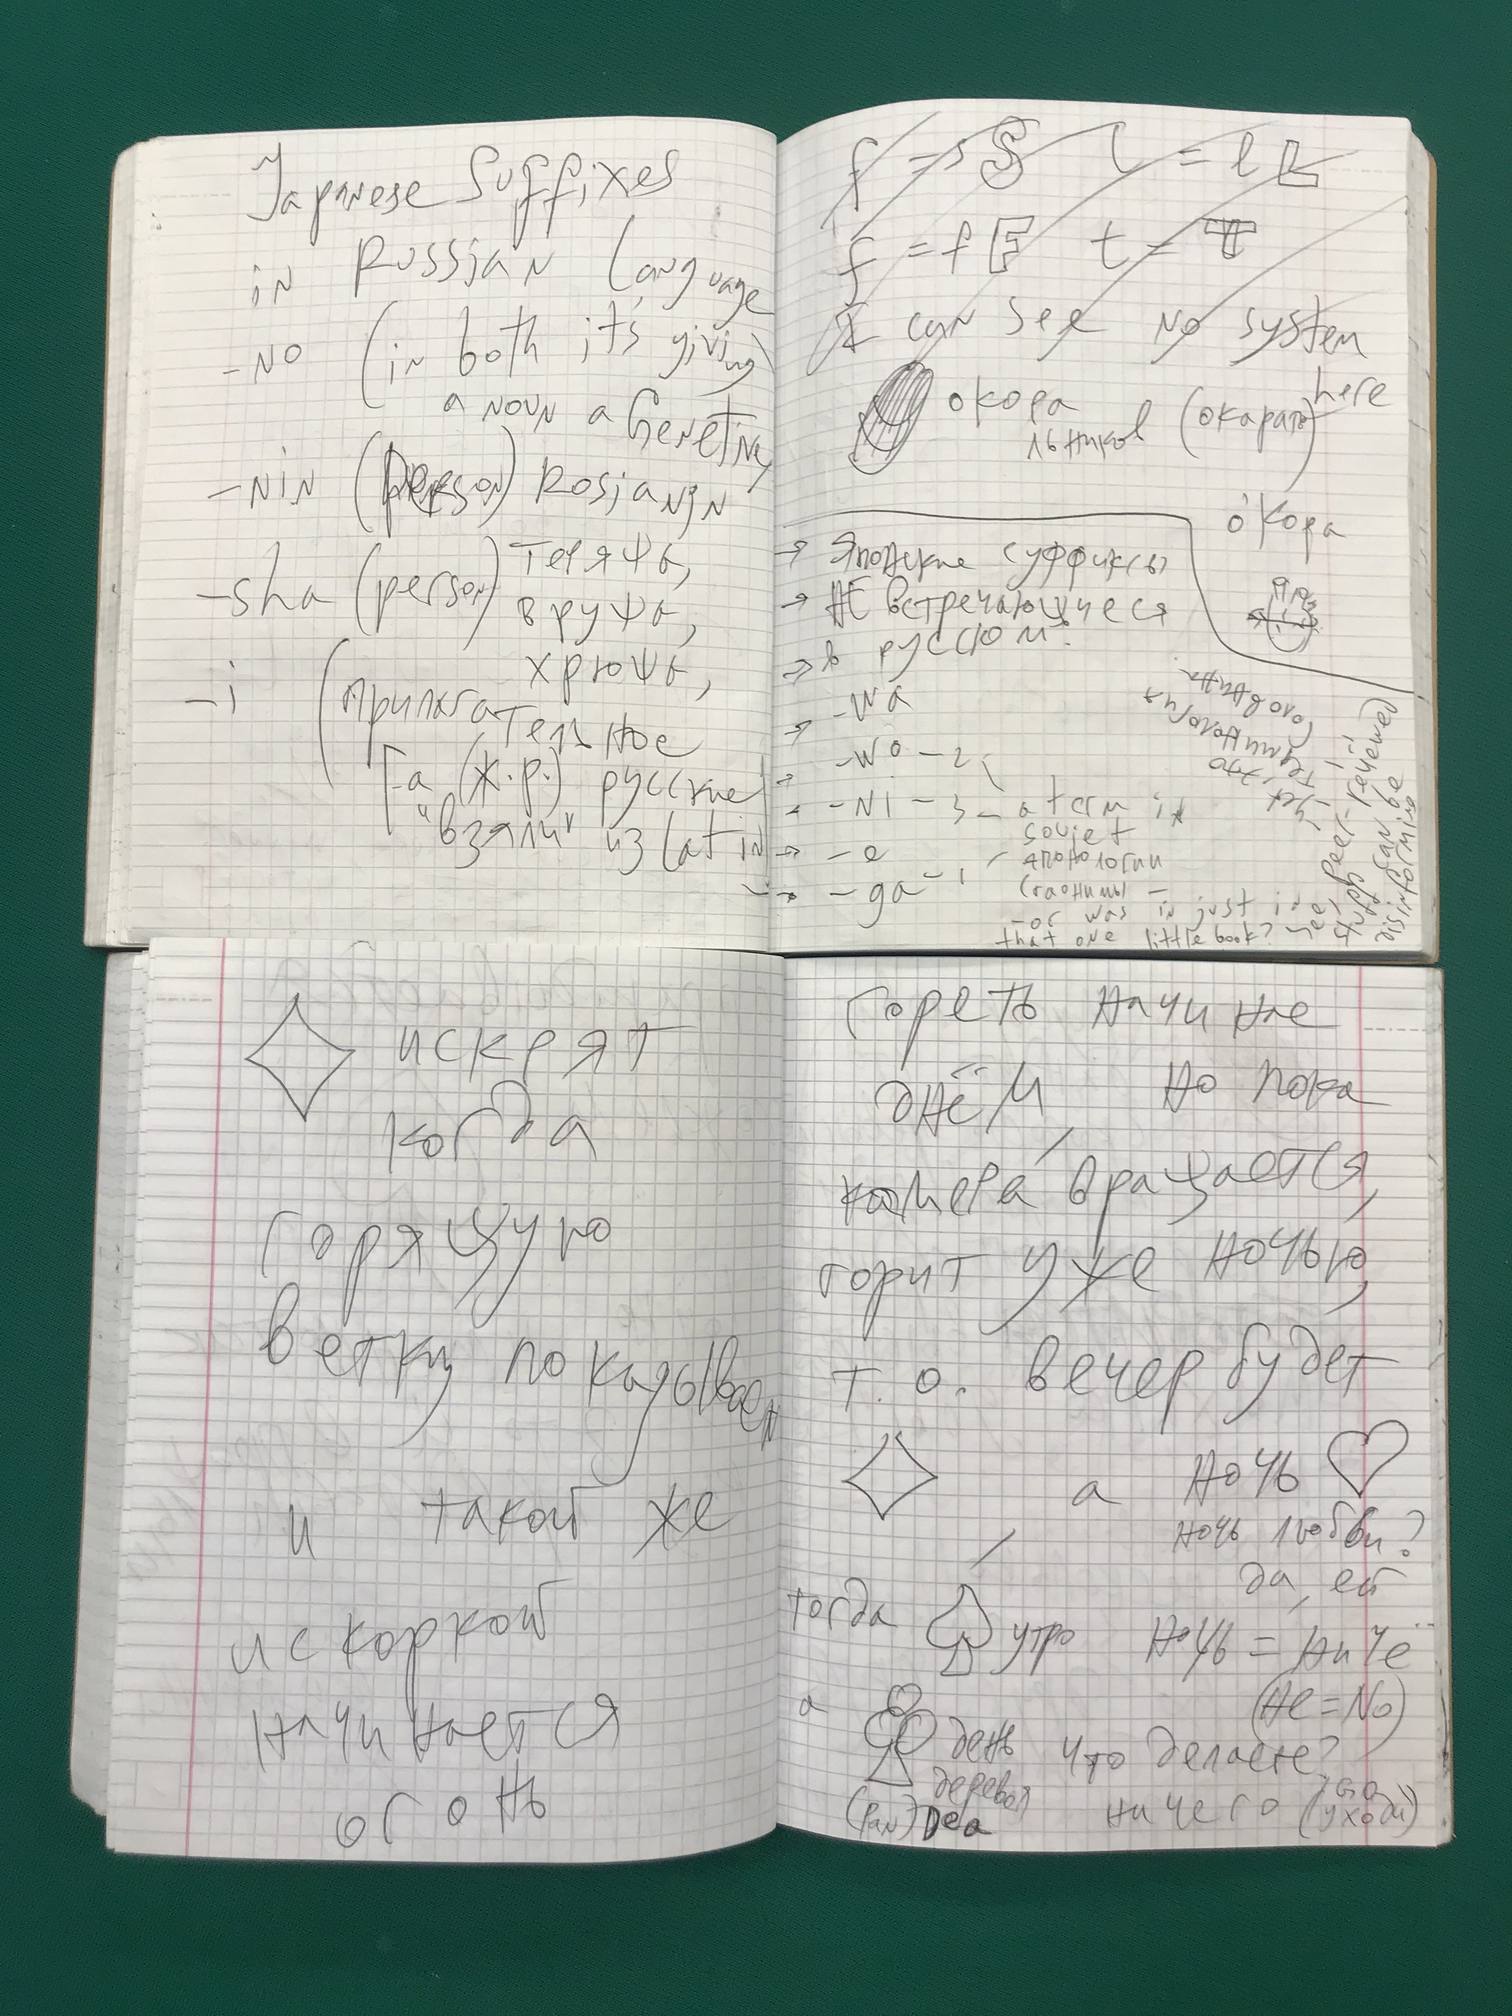 Japanese Suffixes
in Russian language
-no (in both it's giving
a noun a Genetive)
-nin (person) Rosjanin
-sha (person) теряша,
вруша,
хрюша,
-i (прилага
тельное
[-a (ж.р.) русские
"взяли" из latin
f = s S l = l L
f = f F t = T
I can see no system
here
окора
льников (окарать)
о́кора
→ Японские суффиксы
→ НЕ встречающиеся
→ в русском:
-wa
-wo - 2
-ni - 3 - a term in
soviet
-e японологии
-ga - 1 (гаонимы -
-or was in just in
that one little book?
yes, это
терминология
Головнина
see, peer-reviewed
stuff can be
disinforming
искрят
когда
горящую
ветку покадываем
и такой же
искоркой
начинается
огонь
гореть начинае
днём, но пока
камера вращается,
горит уже ночью,
т.о. вечер будет
, а ночь
ночь любви?
да, ей
тогда утро ночь = ниче
(не = No)
а день что делаете?
деревья
ничего (уходи)
(Pan) Dea